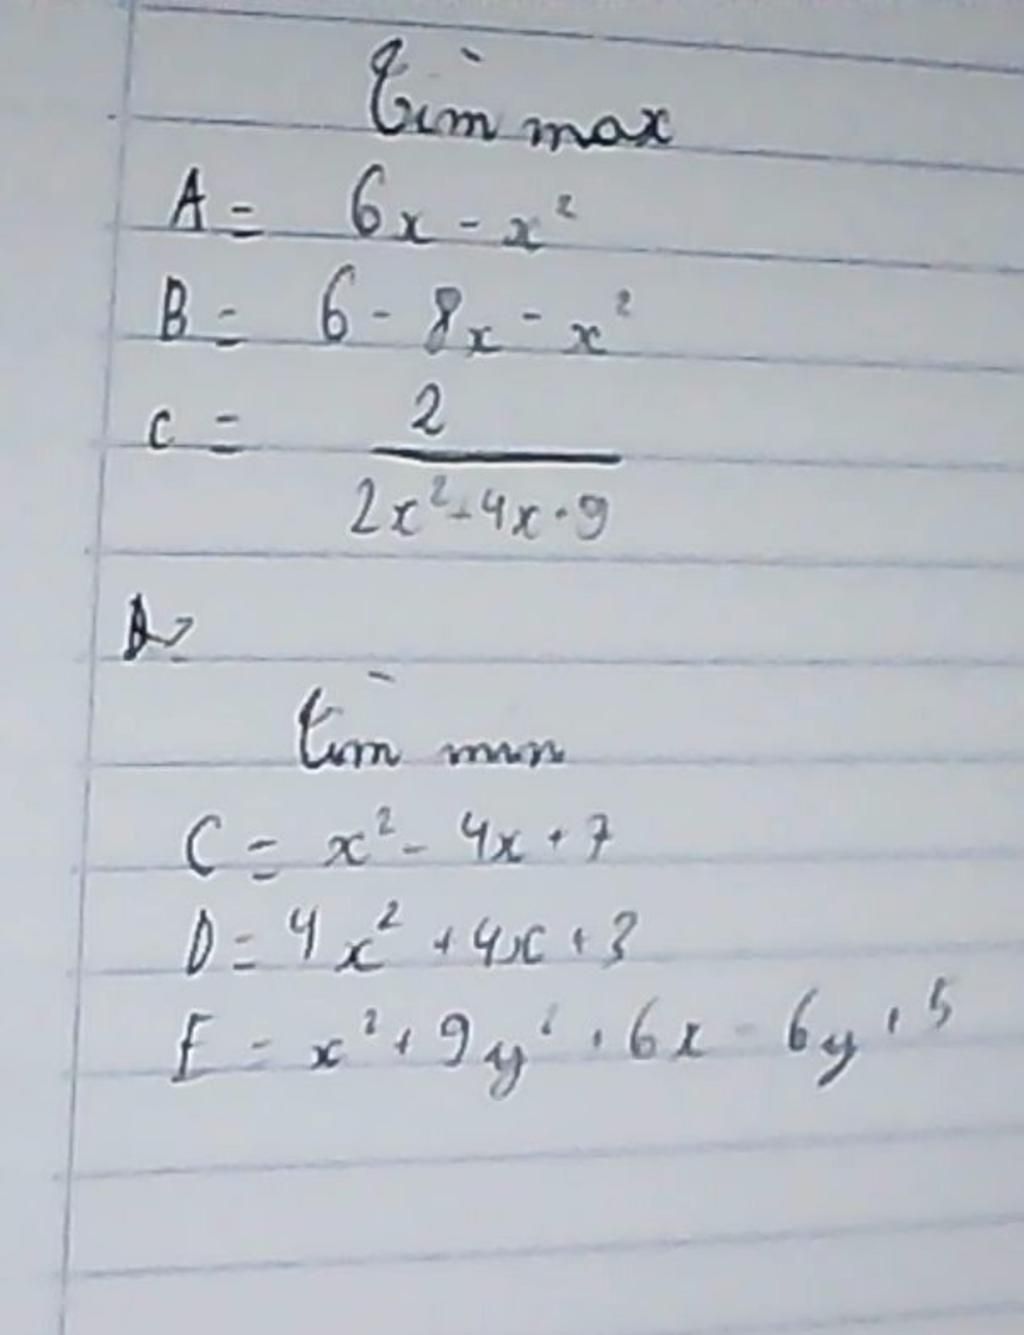 tìm max
A = 6x - x²
B = 6 - 8x - x²
C = 2
2x² - 4x + 9
tìm min
C = x² - 4x + 7
D = 4x² + 4x + 3
E = x² + 9y² + 6x - 6y + 5